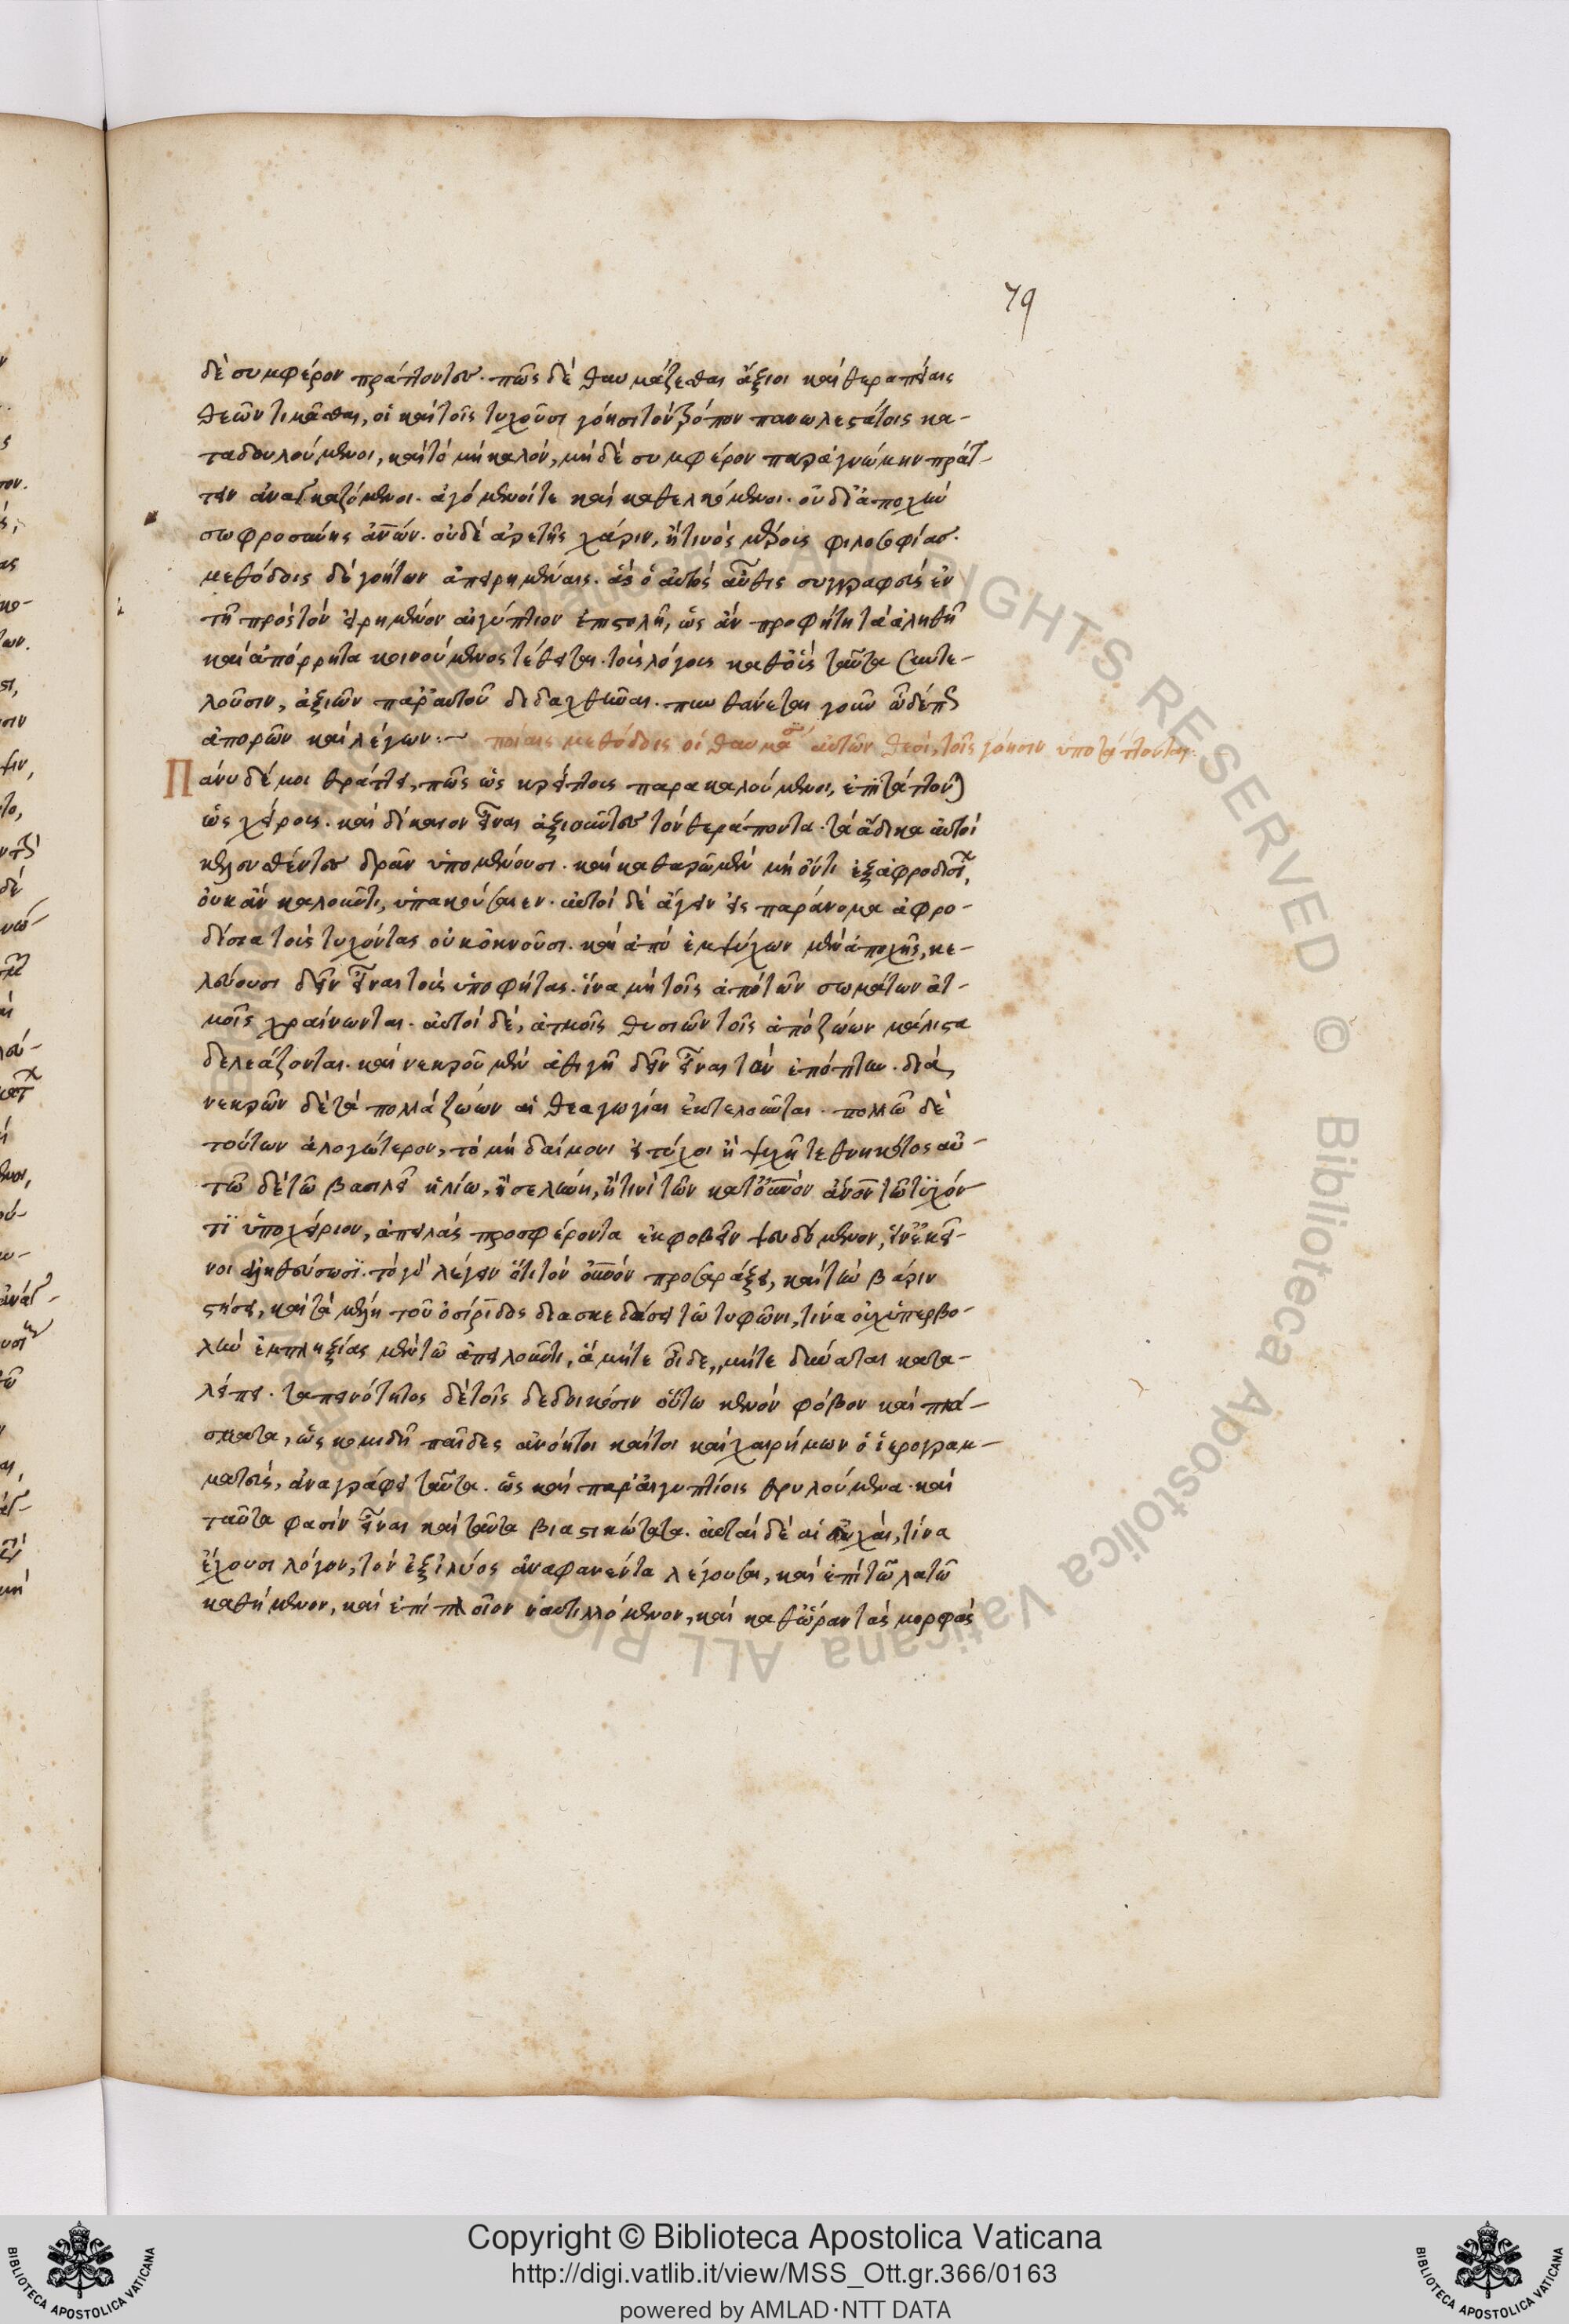 79
δὲ συμφέρον πράττοντες. πῶς δὲ θαυμάζεσθαι ἄξιοι καὶ θεραπείαις
θεῶν τιμᾶσθαι, οἱ καὶ τοῖς τυχοῦσι γόησι τὸν τρόπον πανωλεστάτοις κα-
ταδουλούμενοι, καὶ τὸ μὴ καλὸν, μηδὲ συμφέρον παρὰ γνώμην πράτ-
τειν ἀναγκαζόμενοι. ἀγόμενοί τε καὶ καθελκόμενοι. οὐ δι' ἀποχὴν
σωφροσύνης ἀνῶν. οὐδὲ ἀρετῆς χάριν, ἤ τινος μέρους φιλοσοφίας.
μεθόδοις δὲ γοήτων ἀπειρημέναις. ἃς ὁ αὐτὸς αὖθις συγγραφεὺς ἐν
τῇ πρὸς τὸν εἰρημένον αἰγύπτιον ἐπιστολῇ, ὡς ἂν προφήτῃ τὰ ἀληθῆ
καὶ ἀπόρρητα κοινούμενος τέθειται. τοὺς λόγους καθ' οὓς ταῦτα συντε-
λοῦσιν, ἀξιῶν παρ' αὐτοῦ διδαχθῆναι. πυνθάνεται γοῦν ὧδέ πως
ἀπορῶν καὶ λέγων:~ ποίαις μεθόδοις οἱ θαυμάσ αὐτῶν θεοὶ, τοῖς γόησιν ὑποτάττονται.
Πάνυ δέ μοι θράττει, πῶς ὡς κρείττους παρακαλούμενοι, ἐπιτάττονται
ὡς χείρους. καὶ δίκαιον εἶναι ἀξιοῦντες τὸν θεράποντα. τὰ ἄδικα αὐτοὶ
κελευσθέντες δρᾶν ὑπομένουσι. καὶ καθαρῷ μὲν μὴ ὄντι ἐξ ἀφροδισί,
οὐκ ἂν καλοῦντι, ὑπακούσαιεν. αὐτοὶ δὲ ἄγειν εἰς παράνομα ἀφρο-
δίσια τοὺς τυχόντας οὐκ ὀκνοῦσι. καὶ ἀπὸ ἐμψύχων μὲν ἀποχῆς, κε-
λεύουσι δεῖν εἶναι τοὺς ὑποφήτας. ἵνα μὴ τοῖς ἀπὸ τῶν σωμάτων ἀτ-
μοῖς χραίνωνται. αὐτοὶ δὲ, ἀτμοῖς θυσιῶν τοῖς ἀπὸ ζώων μάλιστα
δελεάζονται. καὶ νεκροῦ μὲν ἀθιγῆ δεῖν εἶναι τὸν ἐπόπτην. διὰ
νεκρῶν δὲ τὰ πολλὰ ζώων αἱ θεαγωγίαι ἐκτελοῦνται. πολλῷ δὲ
τούτων ἀλογώτερον, τὸ μὴ δαίμονι εἰ τύχοι ἢ ψυχῇ τεθνηκότος αὐ-
τῷ δὲ τῷ βασιλεῖ ἡλίῳ, ἢ σελήνῃ, ἤ τινι τῶν κατ' οὐνὸν ἀνον τῷ τυχόν
τι ὑποχείριον, ἀπειλὰς προσφέροντα ἐκφοβεῖν ψευδόμενον, ἵν' ἐκεῖ-
νοι ἀληθεύσωσι. τὸ γὰρ λέγειν ὅτι τὸν οὐνὸν προσαράξει, καὶ τὴν βάριν
στήσει, καὶ τὰ μέλη τοῦ ὀσίριδος διασκεδάσει τῷ τυφῶνι, τίνα οὐχ ὑπερβο-
λὴν ἐμπληξίας μὲν τῷ ἀπειλοῦντι, ἃ μήτε οἶδε, μήτε δύναται κατα-
λείπει. ταπεινότητος δὲ τοῖς δεδοικόσιν οὕτω κενὸν φόβον καὶ πλά-
σματα, ὡς κομιδῇ παῖδες ἀνόητοι καίτοι καὶ χαιρήμων ὁ ἱερογραμ-
ματεὺς, ἀναγράφει ταῦτα. ὡς καὶ παρ' αἰγυπτίοις θρυλούμενα. καὶ
ταῦτα φασὶν εἶναι καὶ τοιαῦτα βιαστικώτατα. αὐταὶ δὲ αἱ εὐχαὶ, τίνα
ἔχουσι λόγον, τὸν ἐξ ἰλύος ἀναφανέντα λέγουσαι, καὶ ἐπὶ τῷ λωτῷ
καθήμενον, καὶ ἐπὶ πλοῖον ναυτιλλόμενον, καὶ καθ' ὥραν τὰς μορφὰς
Copyright © Biblioteca Apostolica Vaticana
http://digi.vatlib.it/view/MSS_Ott.gr.366/0163
powered by AMLAD·NTT DATA